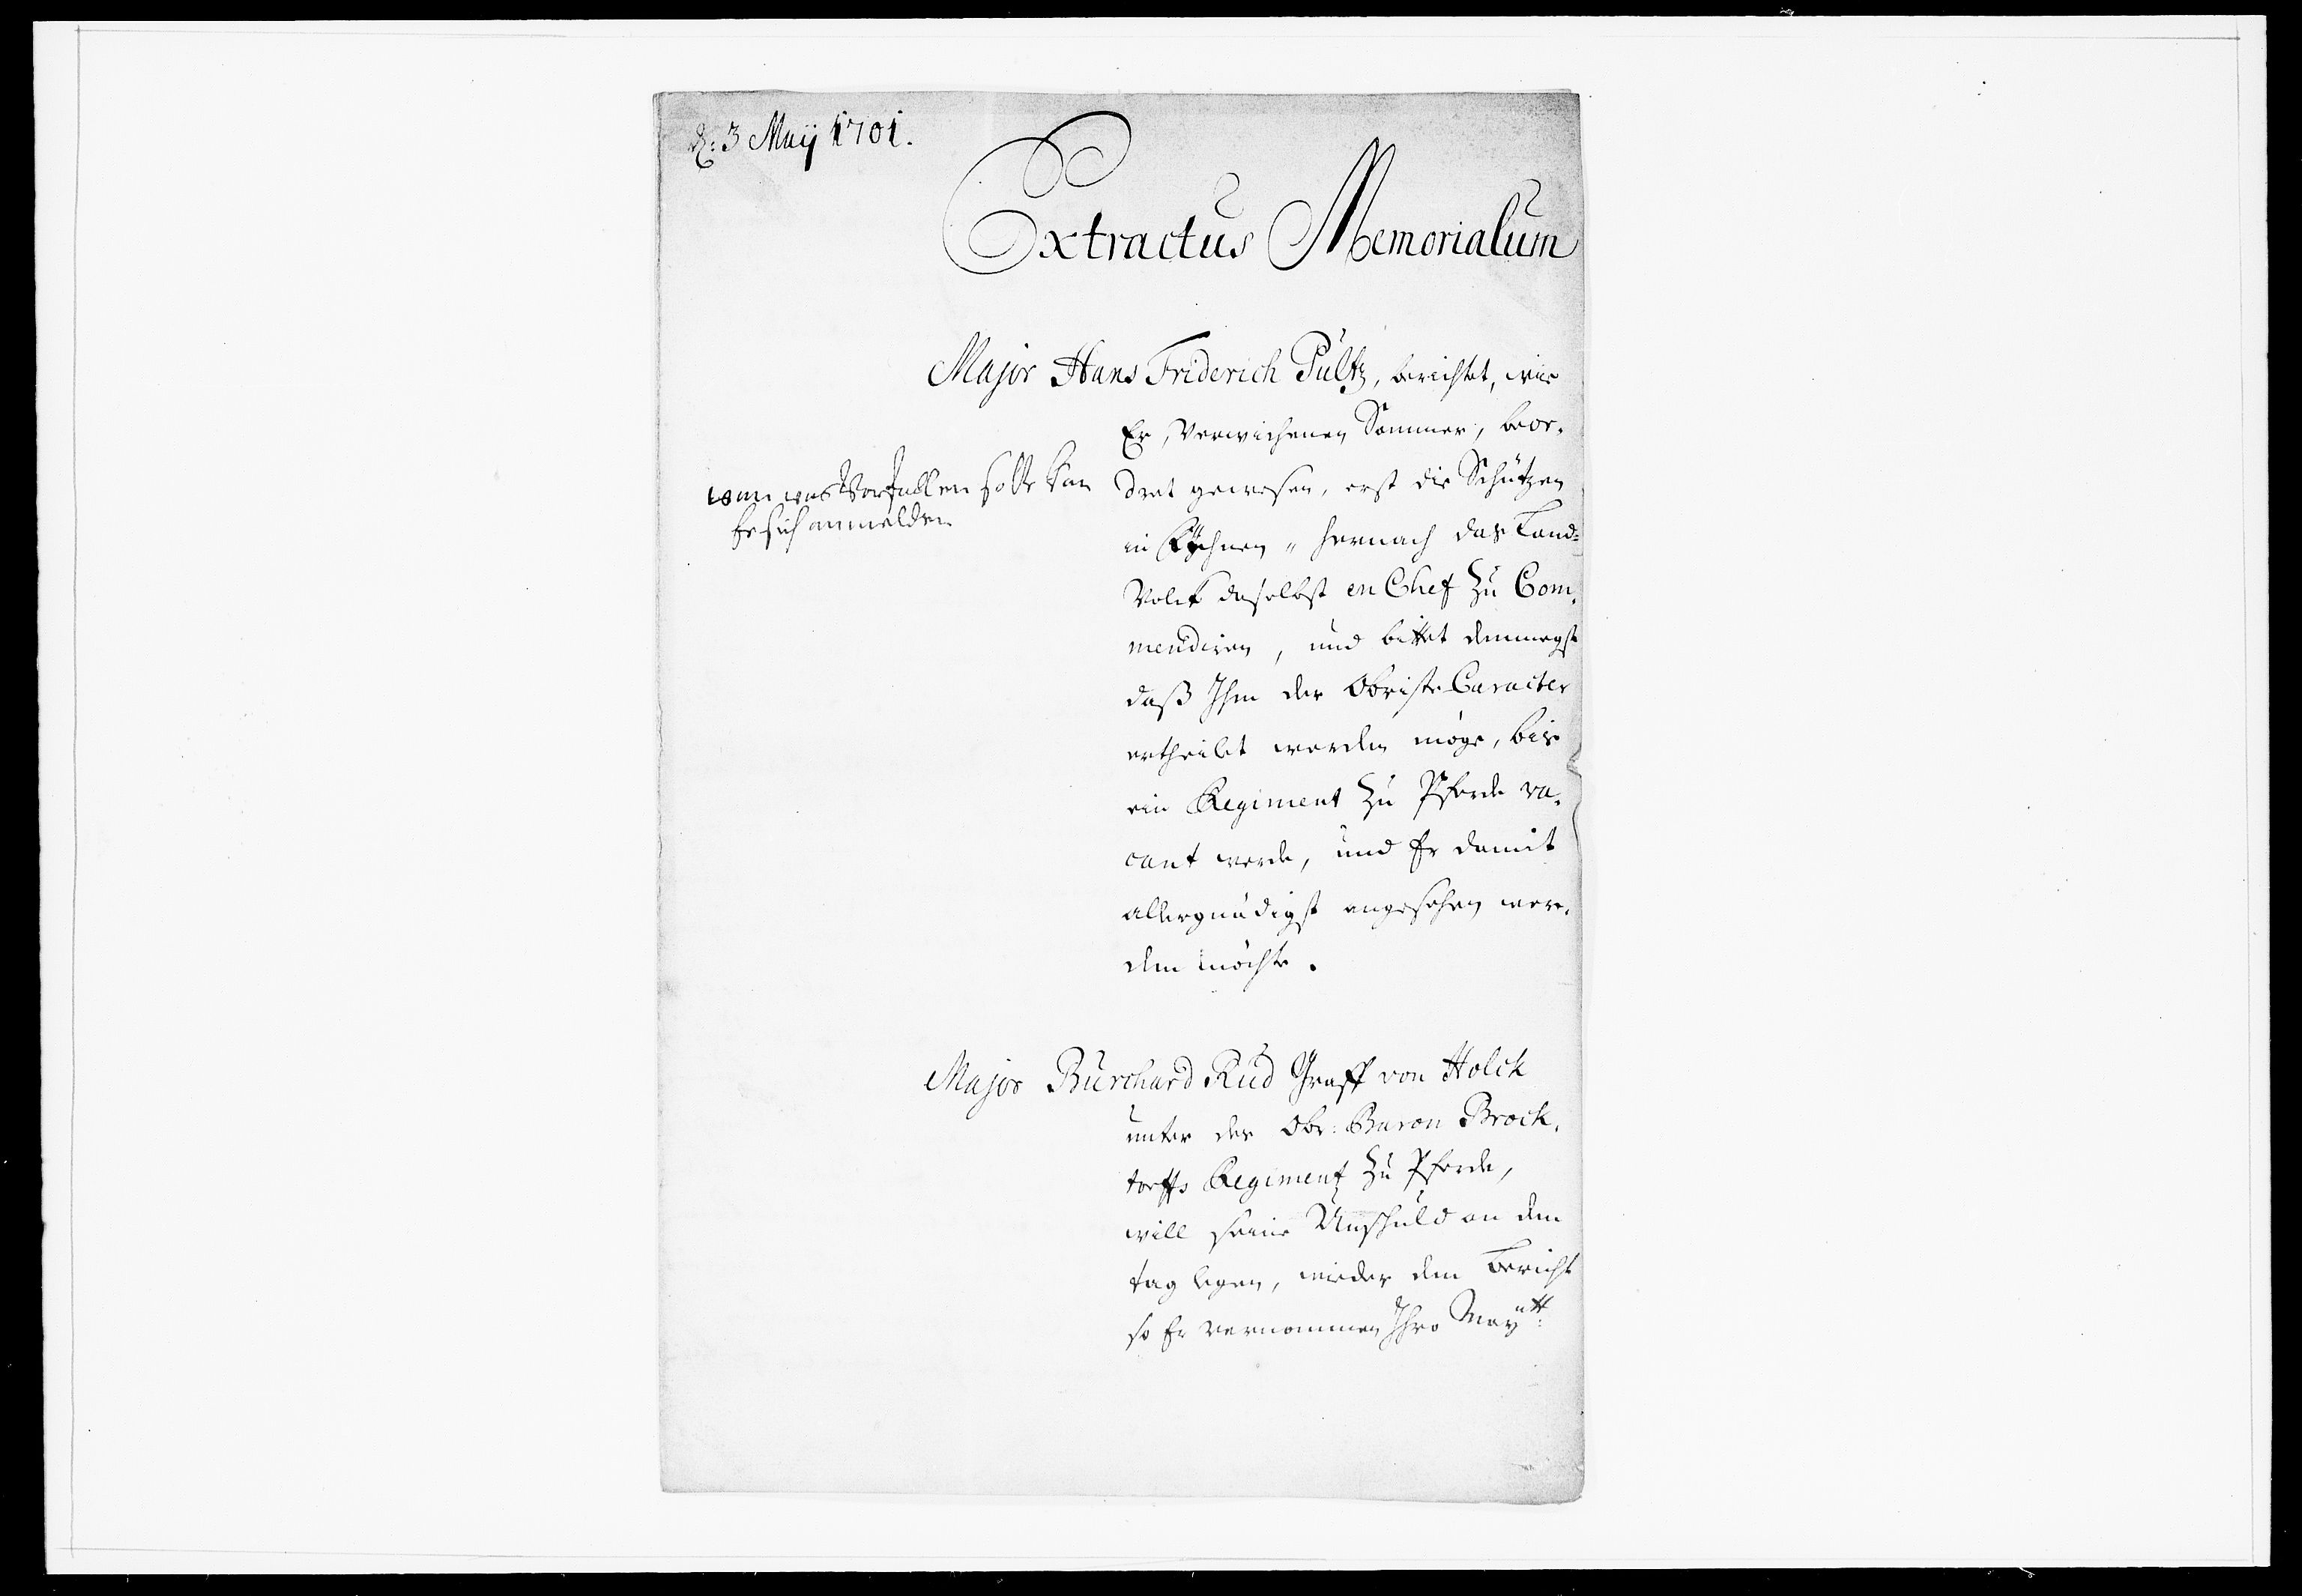 d: 3 Maÿ 1701.
Extractus Memorialum
Major Hans Friderich Pültz, berichtet, wie
Er, Verwichenen Sommer, beor-
dret gewesen, erst die Schützen
wan was Vorfallen solte kan
Er sich anmelden
in hernach das Land-
Volck daselbst en Chef zu Com-
mendiren, und bittet demnegst
daß Ihm der Obriste Caracter
ertheilet werden möge, bis
ein Regiment zu Pferde va-
cant werde, und Er damit
allergnädigst angesehen wer-
den möchte.
Major Burchard Rud Graff von Holck
unter des Obr: Baron Brock-
torffs Regiment zu Pferde,
will seine Unschuld an den
tag legen, wieder den Bericht
so Er vernommen Ihro Maytt: